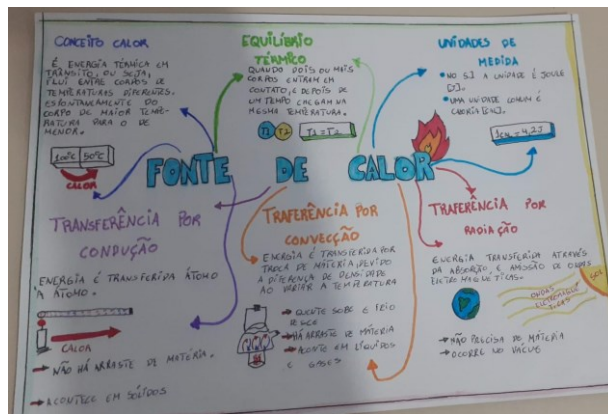 CONCEITO CALOR
É ENERGIA TÉRMICA EM
TRÂNSITO, OU SEJA,
FLUI ENTRE CORPOS DE
TEMPERATURAS DIFERENTES.
ESPONTANEAMENTE DO
CORPO DE MAIOR TEMPE-
RATURA PARA O DE
MENOR.
100°C 50°C
CALOR
EQUILÍBRIO
TÉRMICO
QUANDO DOIS OU MAIS
CORPOS ENTRAM EM
CONTATO, E DEPOIS DE
UM TEMPO CHEGAM NA
MESMA TEMPERATURA.
T1 T2 T1=T2
UNIDADES DE
MEDIDA
NO SI A UNIDADE É JOULE
[J].
UMA UNIDADE COMUM É
CALORIA
= 4,2J
FONTE DE CALOR
TRANSFERÊNCIA POR
CONDUÇÃO
ENERGIA É TRANSFERIDA ÁTOMO
A ÁTOMO.
CALOR
→ NÃO HÁ ARRASTE DE MATÉRIA.
→ ACONTECE EM SÓLIDOS
TRAFERÊNCIA POR
CONVECÇÃO
ENERGIA É TRANSFERIDA POR
TROCA DE MATÉRIA, DEVIDO
A DIFERENÇA DE DENSIDADE
AO VARIAR A TEMPERATURA
→ QUENTE SOBE E FRIO
DESCE
→ HÁ ARRASTE DE MATÉRIA
→ ACONTE EM LÍQUIDOS
E GASES
TRAFERÊNCIA POR
RADIAÇÃO
ENERGIA TRANSFERIDA ATRAVÉS
DA ABSORÇÃO, E EMISSÃO DE ONDAS
ELETROMAGNÉTICAS.
SOL
ONDAS
→ NÃO PRECISA DE MATÉRIA
→ OCORRE NO VÁCUO